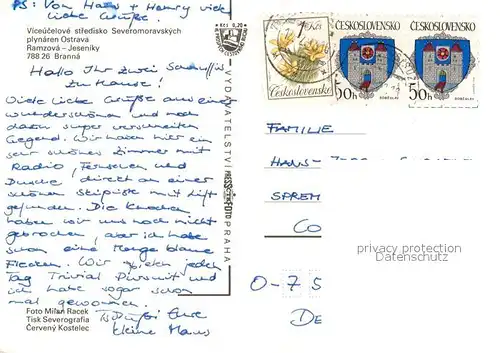 PS: Von Hans + Henry viele
liebe Grüße.
Kčs 0,20
Víceúčelové středisko Severomoravských
plynáren Ostrava
Ramzová - Jeseníky
788 26 Branná
Hallo Ihr zwei
zu Hause!
Viele liebe Grüße aus einer
wunderschönen und noch
dazu super verschneiten
Gegend. Wir haben hier ein
sehr schönes Zimmer mit
Radio, Fernsehen und
Dusche direkt an einer
schönen Skipiste mit Lift
gefunden. Die Knochen
haben wir uns noch nicht
gebrochen, aber ich habe
schon eine Menge blaue
Flecken. Wir spielen jeden
Tag Trivial Pursuit und
ich habe sogar schon
mal gewonnen.
Eure
kleine Maus
Foto Milan Racek
Tisk Severografia
Červený Kostelec
VYDAVATELSTVÍ PRESSFOTO PRAHA
1 Kčs
Československo
ČESKOSLOVENSKO
50h
ČESKOSLOVENSKO
50h
FAMILIE
HANS-
SPREM
CO
privacy protection
Datenschutz
O-75
DE